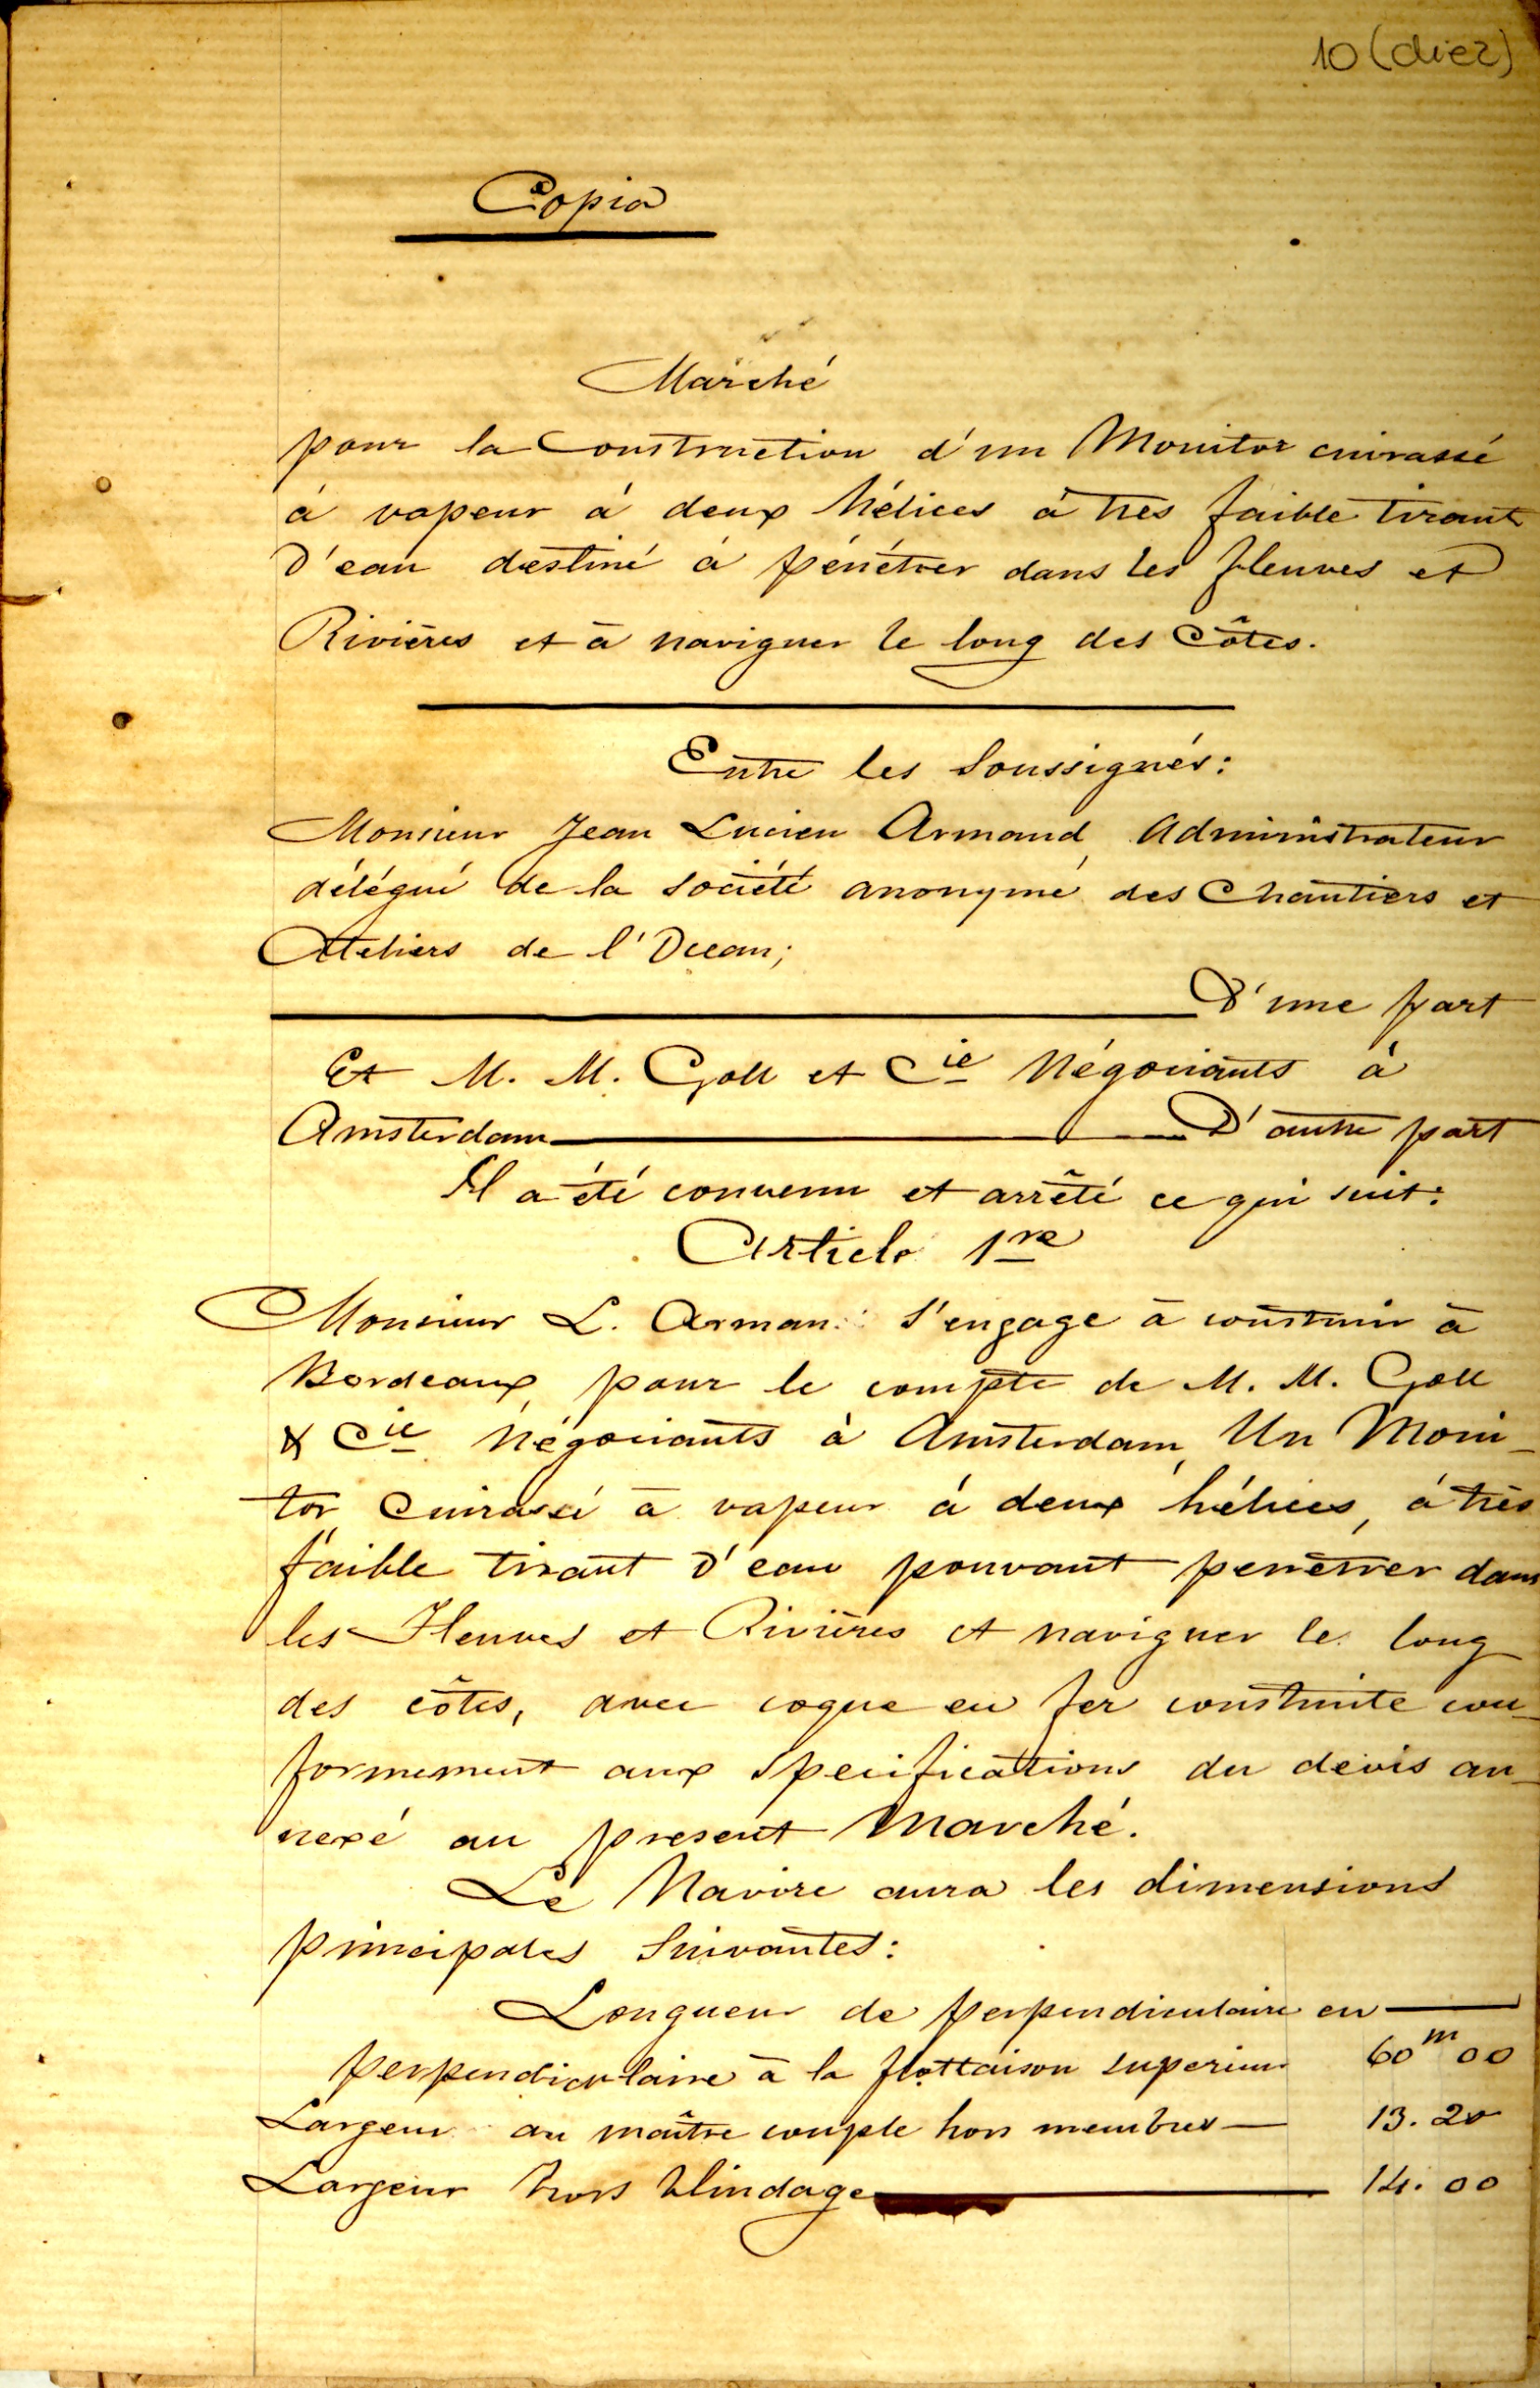 10 (diez)
Copia
Marché
pour la Construction d'un Monitor cuirassé
à vapeur à deux hélices à très faible tirant
D'eau destiné à pénétrer dans les fleuves et
Rivières et à naviguer le long des Côtes.
Entre les Soussignés:
Monsieur Jean Lucien Armand, Administrateur
délégué de la Société anonyme des Chantiers et
Ateliers de l'Ocean;
D'une part
Et M. M. Goll et Cie Négociants à
Amsterdam D'autre part
Il a été convenu et arrêté ce qui suit:
Article 1re
Monsieur L. Arman s'engage à construir à
Bordeaux, pour le compte de M. M. Goll
& Cie Négociants à Amsterdam, Un Moni-
tor Cuirassé à vapeur à deux hélices, à très
faible tirant d'eau pouvant penétrer dans
les Fleuves et Rivières et naviguer le long
des côtes, avec coque en fer construite con-
formement aux specifications du devis an-
nexé au present Marché.
Le Navire aura les dimensions
principales Suivantes:
Longueur de perpendiculaire en
perpendiculaire à la flottaison superieur 60m 00
Largeur au maître couple hors membres 13.20
Largeur hors blindage 14.00